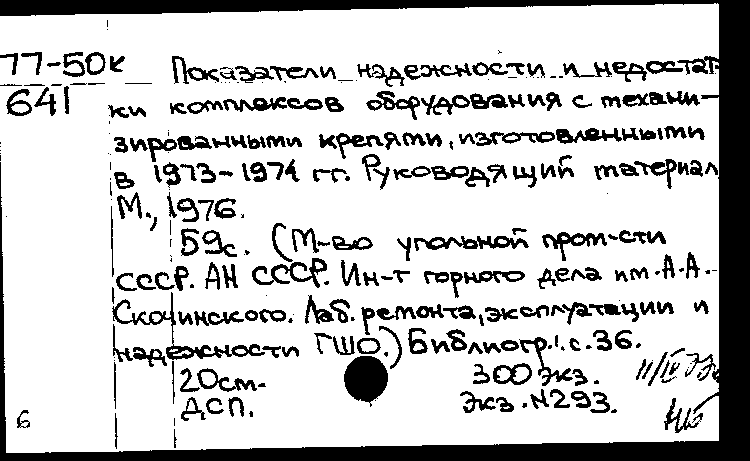 77-50к
641
Показатели надежности и недостат
ки комплексов оборудования с механи-
зированными крепями, изготовленными
в 1973-1974 гг. Руководящий материал
М., 1976.
59с. (М-во угольной пром-сти
СССР. АН СССР. Ин-т горного дела им. А.А.
Скочинского. Лаб. ремонта, эксплуатации и
надежности ГШО.) Библиогр.: с. 36.
20см. 300 экз.
ДСП. Экз. N293.
6